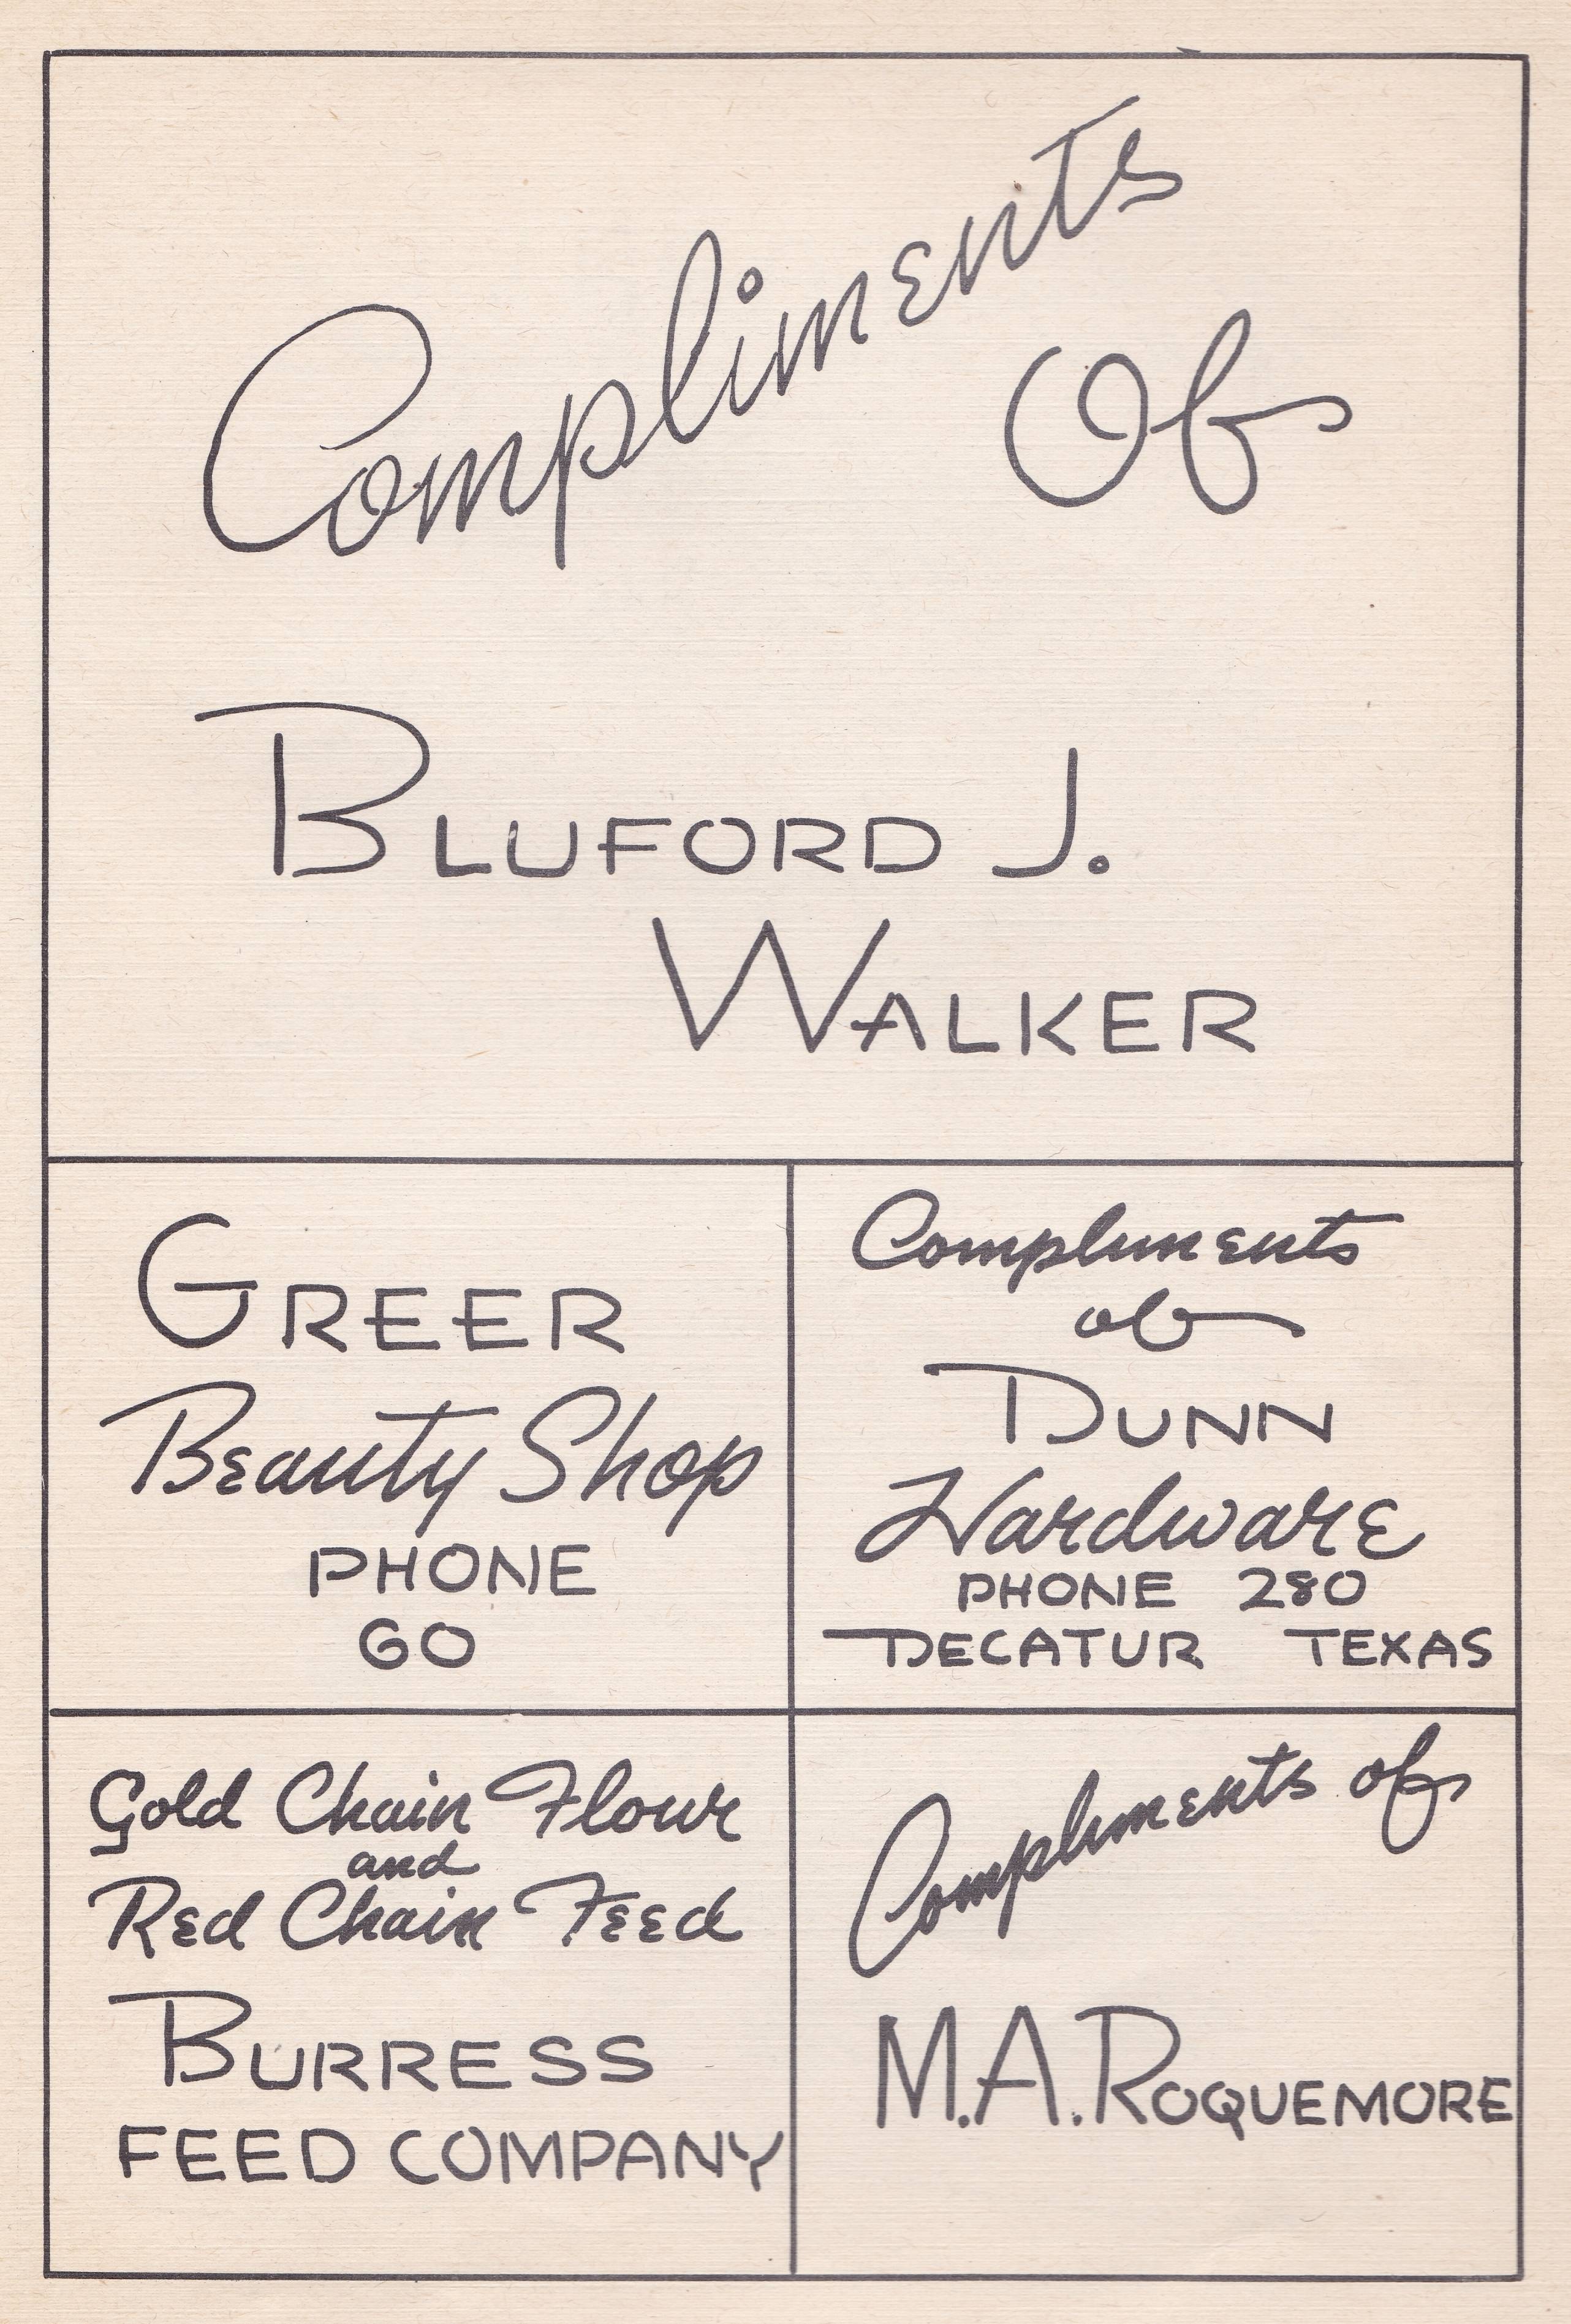 Compliments
Of
BLUFORD J.
WALKER
GREER
Beauty Shop
PHONE
60
Compliments
of
DUNN
Hardware
PHONE 280
DECATUR TEXAS
Gold Chain Flour
and
Red Chain Feed
BURRESS
FEED COMPANY
Compliments of
M.A. ROQUEMORE